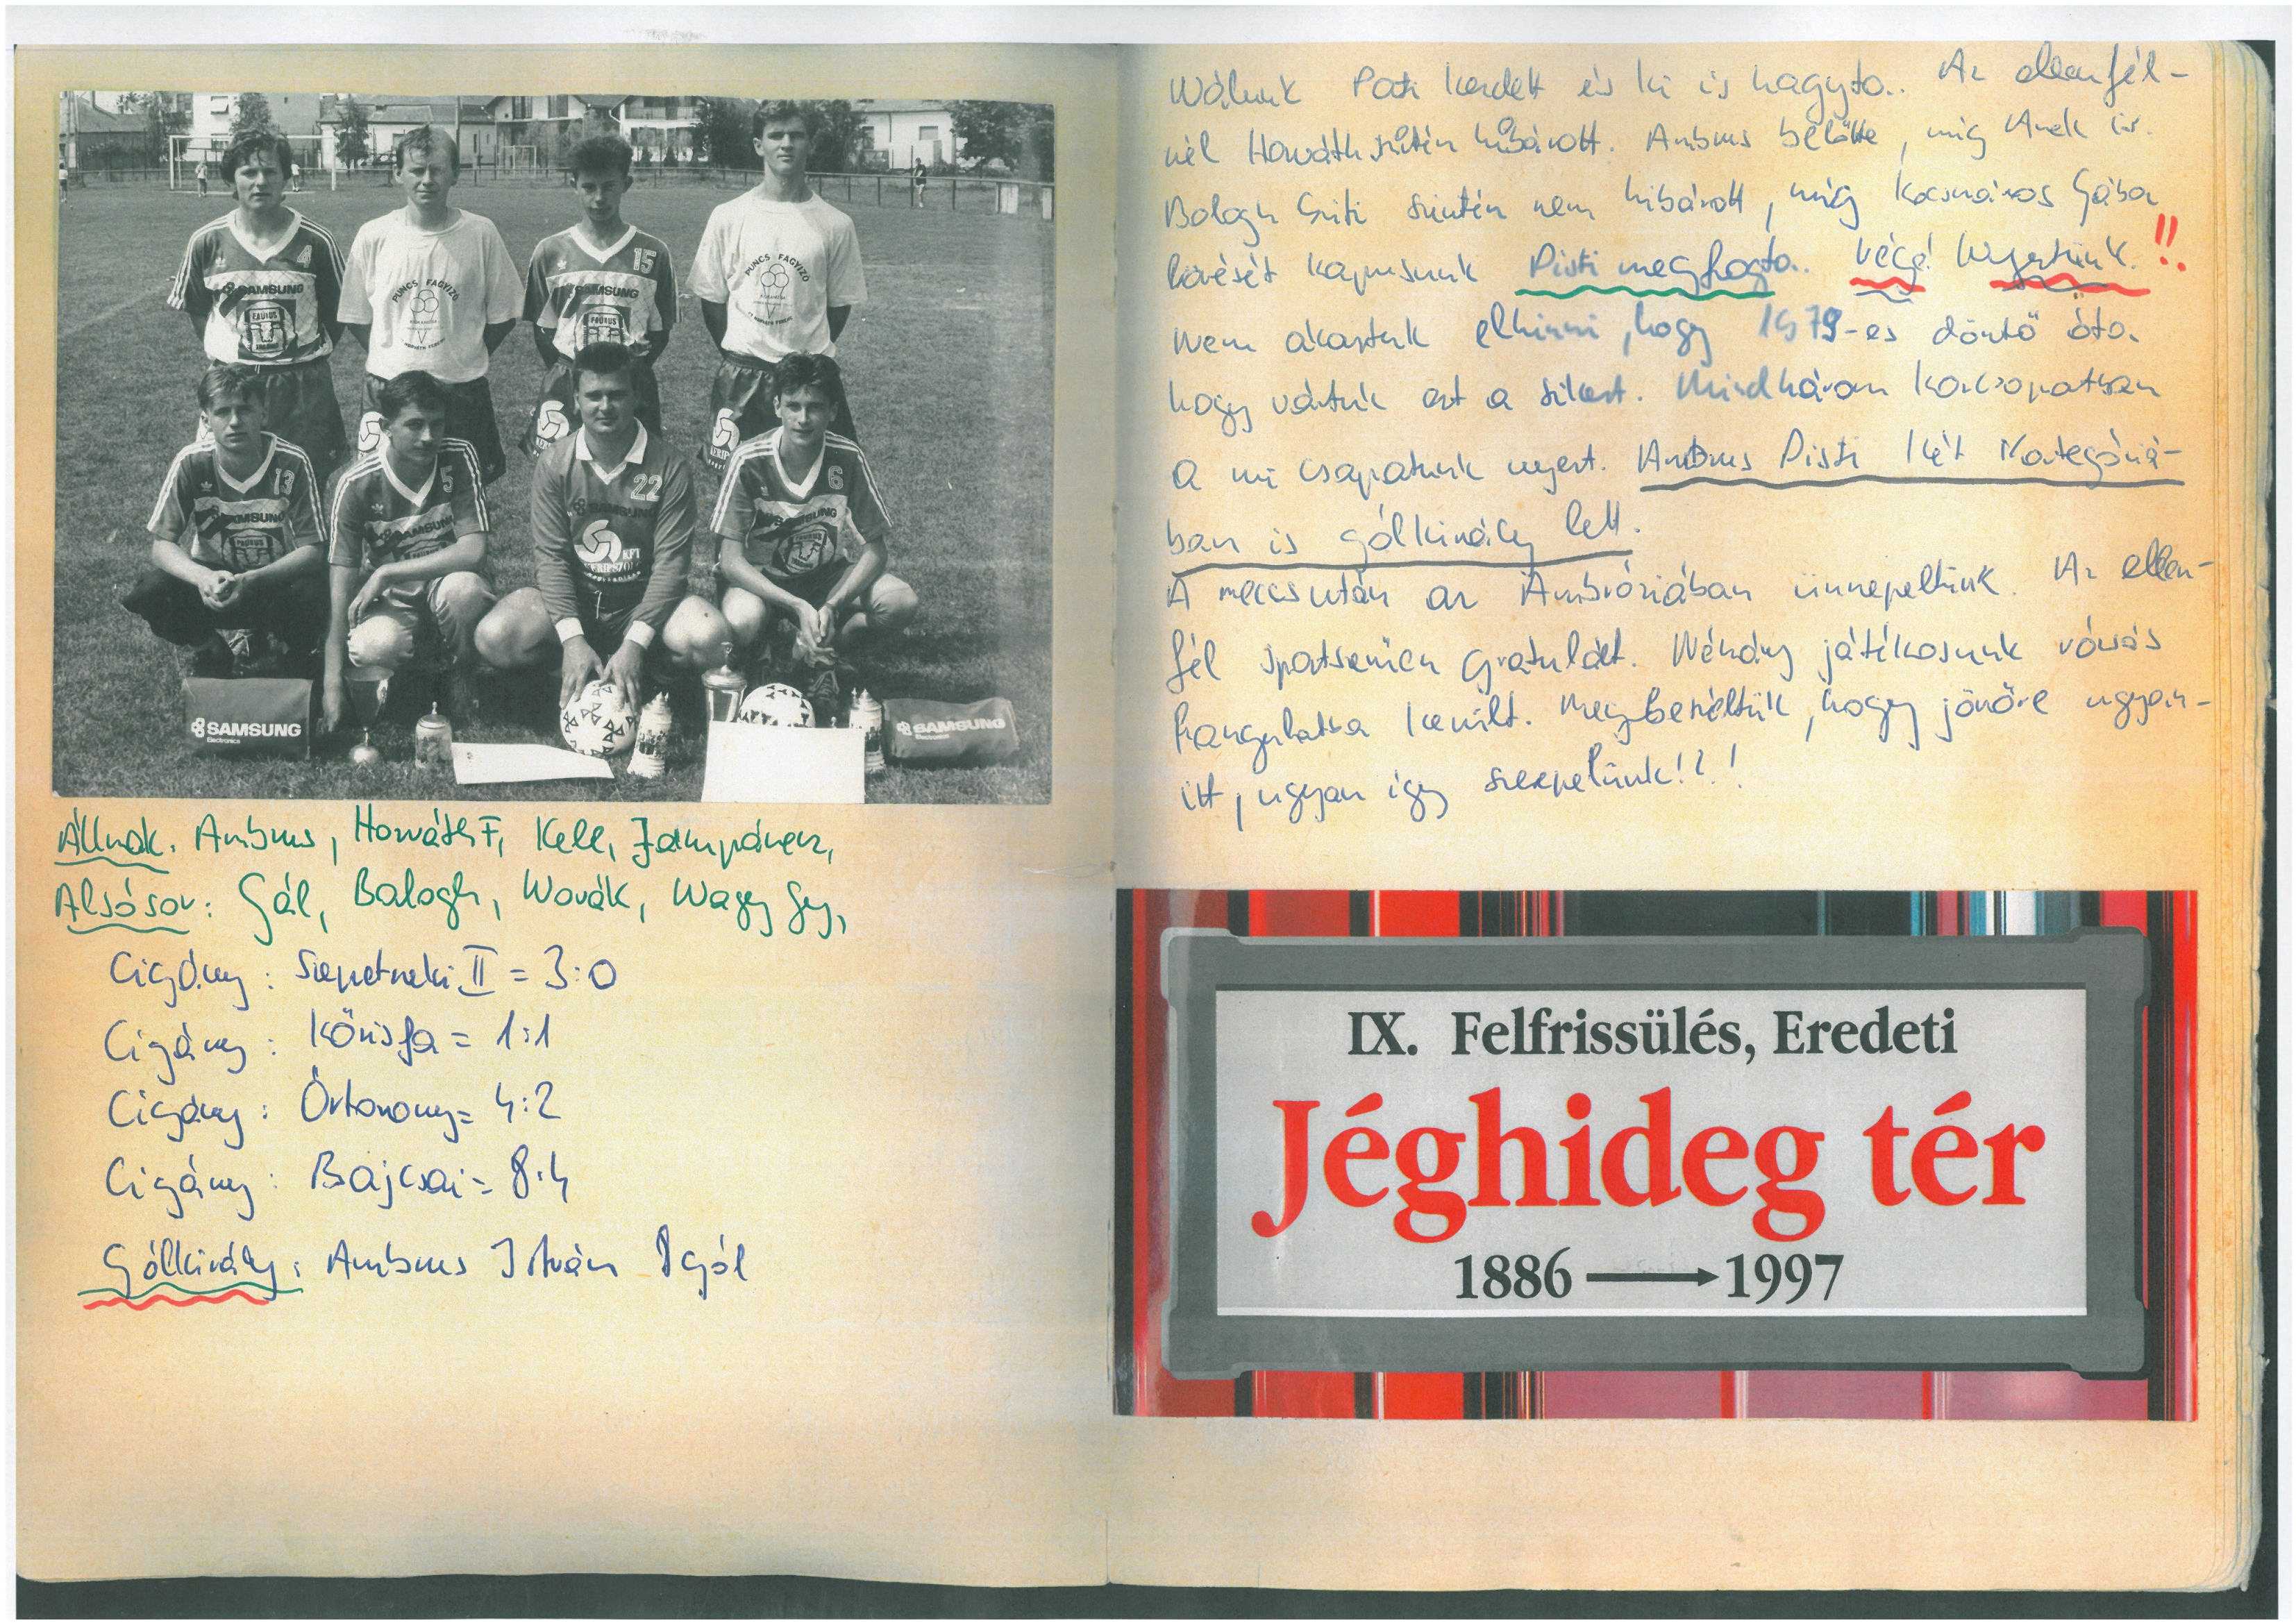 4
15
SAMSUNG
TAURUS
PUNCS FAGYIZÓ
SAMSUNG
TAURUS
PUNCS FAGYIZÓ
13
5
22
6
SAMSUNG
SAMSUNG
SAMSUNG
SAMSUNG
TAURUS
KFT
SAMSUNG
Electronics
SAMSUNG
Electronics
Állnak. Ambrus, Horváth F, Kele, Zámpárecz,
Alsósor: Gál, Balogh, Novák, Nagy Gy,
Cigány: Szepetneki II = 3:0
Cigány: Kőrisfa = 1:1
Cigány: Őrtorony = 4:2
Cigány: Bajcsai = 8:4
Gólkirály: Ambrus István gól
Nálunk Pati kezdett és ki is hagyta. Az ellenfél-
nél Horváth szintén hibázott. Ambrus belőtte, míg is.
Balogh szintén nem hibázott, míg Kocsmáros Gába
lövését kapusunk Pisti megfogta. Vége! Nyertünk.!!
Nem akartuk elhinni, hogy 1979-es döntő óta
hogy vártuk ezt a sikert. Mindhárom korcsoportban
a mi csapatunk nyert. Ambrus Pisti két kategóriá-
ban is gólkirály lett.
A meccs után az Ambróziában ünnepeltünk. Az ellen-
fél sportszerűen gratulált. Néhány játékosunk rózsás
hangulatba került. Megbeszéltük, hogy jövőre ugyan-
itt, ugyan így szerepelünk!?!
IX. Felfrissülés, Eredeti
Jéghideg tér
1886 → 1997